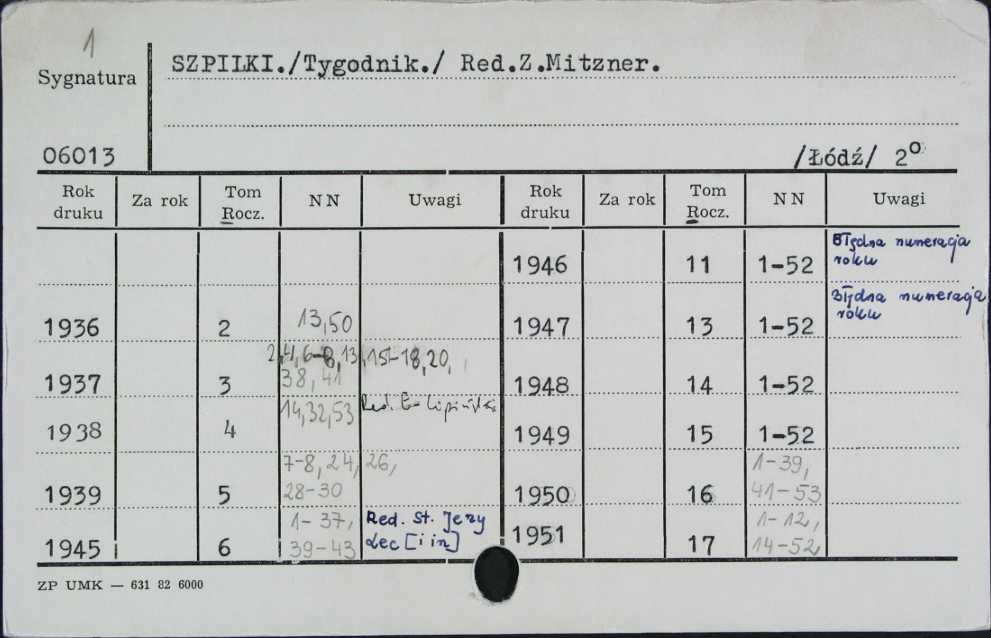 1
Sygnatura
SZPILKI./Tygodnik./ Red.Z.Mitzner.
06013
/Łódź/ 2º
Rok druku Za rok Tom Rocz. NN Uwagi Rok druku Za rok Tom Rocz. NN Uwagi
1946 11 1-52 Błędna numeracja roku
1936 2 13,50 1947 13 1-52 Błędna numeracja roku
1937 3 2,4,6-8,13,15-18,20, 38,41 1948 14 1-52
1938 4 14,32,53 Red. E. Lipiński 1949 15 1-52
1939 5 7-8,24,26, 28-30 1950 16 1-39, 41-53
1945 6 1-37, 39-43 Red. St. Jerzy Lec [i in] 1951 17 1-12, 14-52
ZP UMK — 631 82 6000